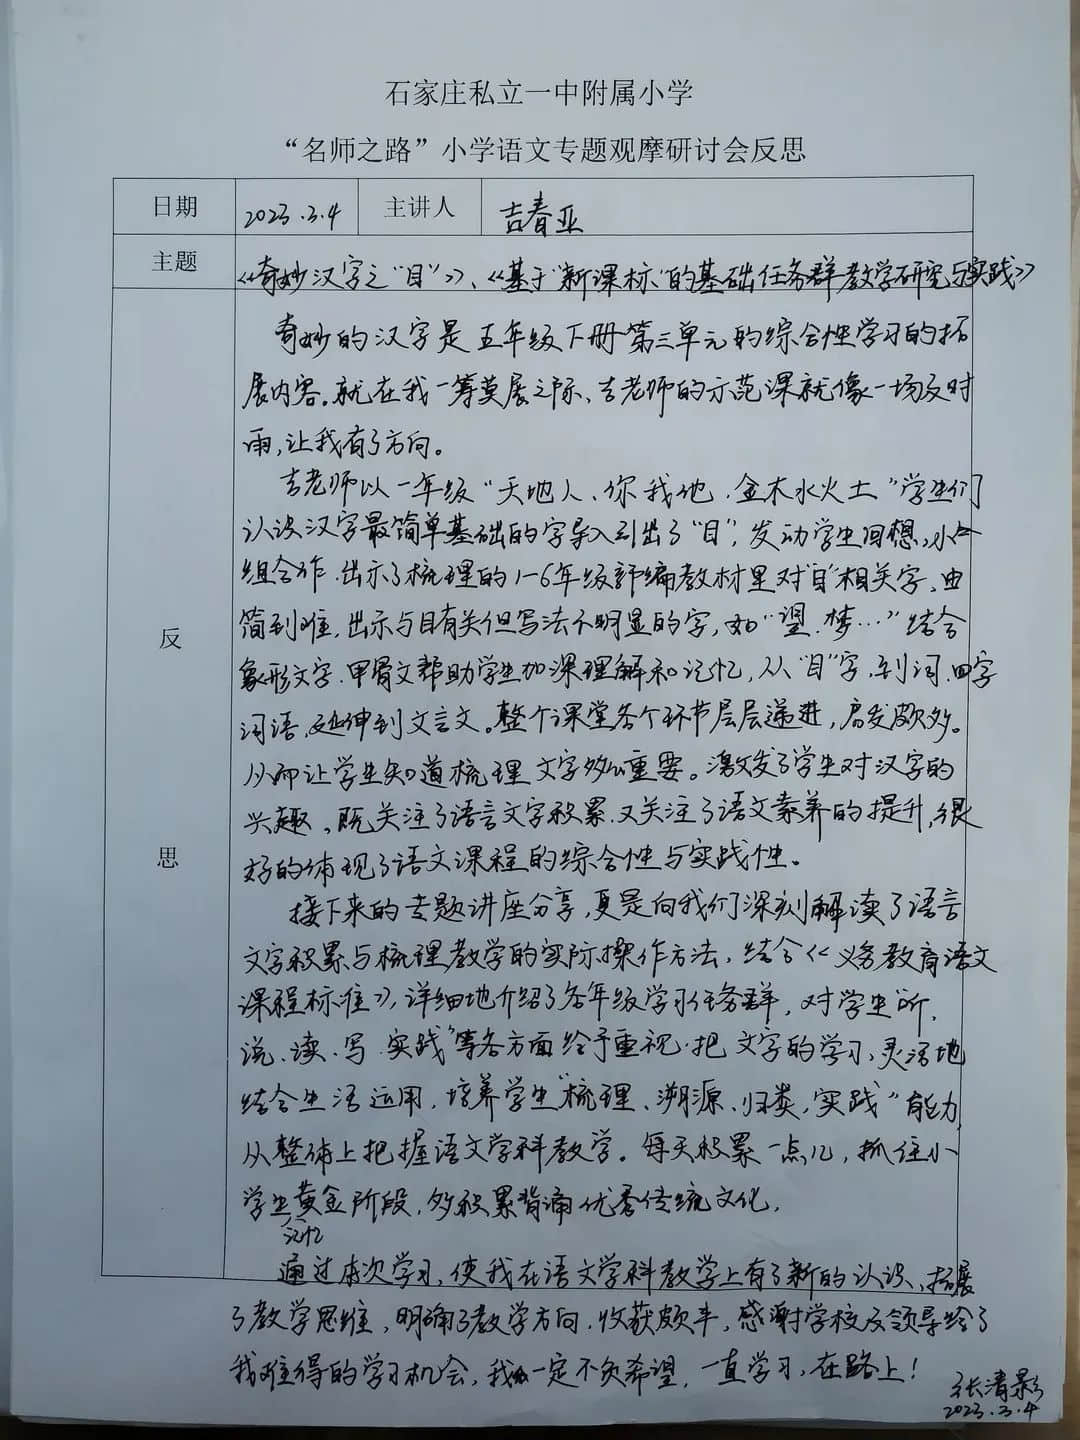 石家庄私立一中附属小学
“名师之路”小学语文专题观摩研讨会反思
日期 2023.3.4 主讲人 吉春亚
主题 《奇妙汉字之“目”》、《基于“新课标”的基础任务群教学研究与实践》
反思
奇妙的汉字是五年级下册第三单元的综合性学习的拓
展内容。就在我一筹莫展之际、吉老师的示范课就像一场及时
雨,让我有了方向。
吉老师以一年级“天地人、你我他、金木水火土”学生们
认识汉字最简单基础的字导入引出了“目”,发动学生回想,小
组合作.出示了梳理的1-6年级部编教材里对“目”相关字、由
简到难,出示与目有关但写法不明显的字,如“望.梦…”结合
象形文字.甲骨文帮助学生加深理解和记忆,从“目”字,到词.四字
词语,延伸到文言文。整个课堂各个环节层层递进,启发颇多。
从而让学生知道梳理文字多么重要。激发了学生对汉字的
兴趣、既关注了语言文字积累.又关注了语文素养的提升,很
好的体现了语文课程的综合性与实践性。
接下来的专题讲座分享,更是向我们深刻解读了语言
文字积累与梳理教学的实际操作方法,结合《义务教育语文
课程标准》,详细地介绍了各年级学习任务群,对学生“听.
说.读.写.实践”等各方面给予重视.把文字的学习,灵活地
结合生活运用,培养学生“梳理、溯源、归类,实践”能力,
从整体上把握语文学科教学。每天积累一点儿,抓住小
学生黄金阶段,多积累背诵优秀传统文化,
记忆
通过本次学习,使我在语文学科教学上有了新的认识、拓展
了教学思维,明确了教学方向.收获颇丰,感谢学校及领导给了
我难得的学习机会,我一定不负希望,一直学习,在路上!
张清影
2023.3.4